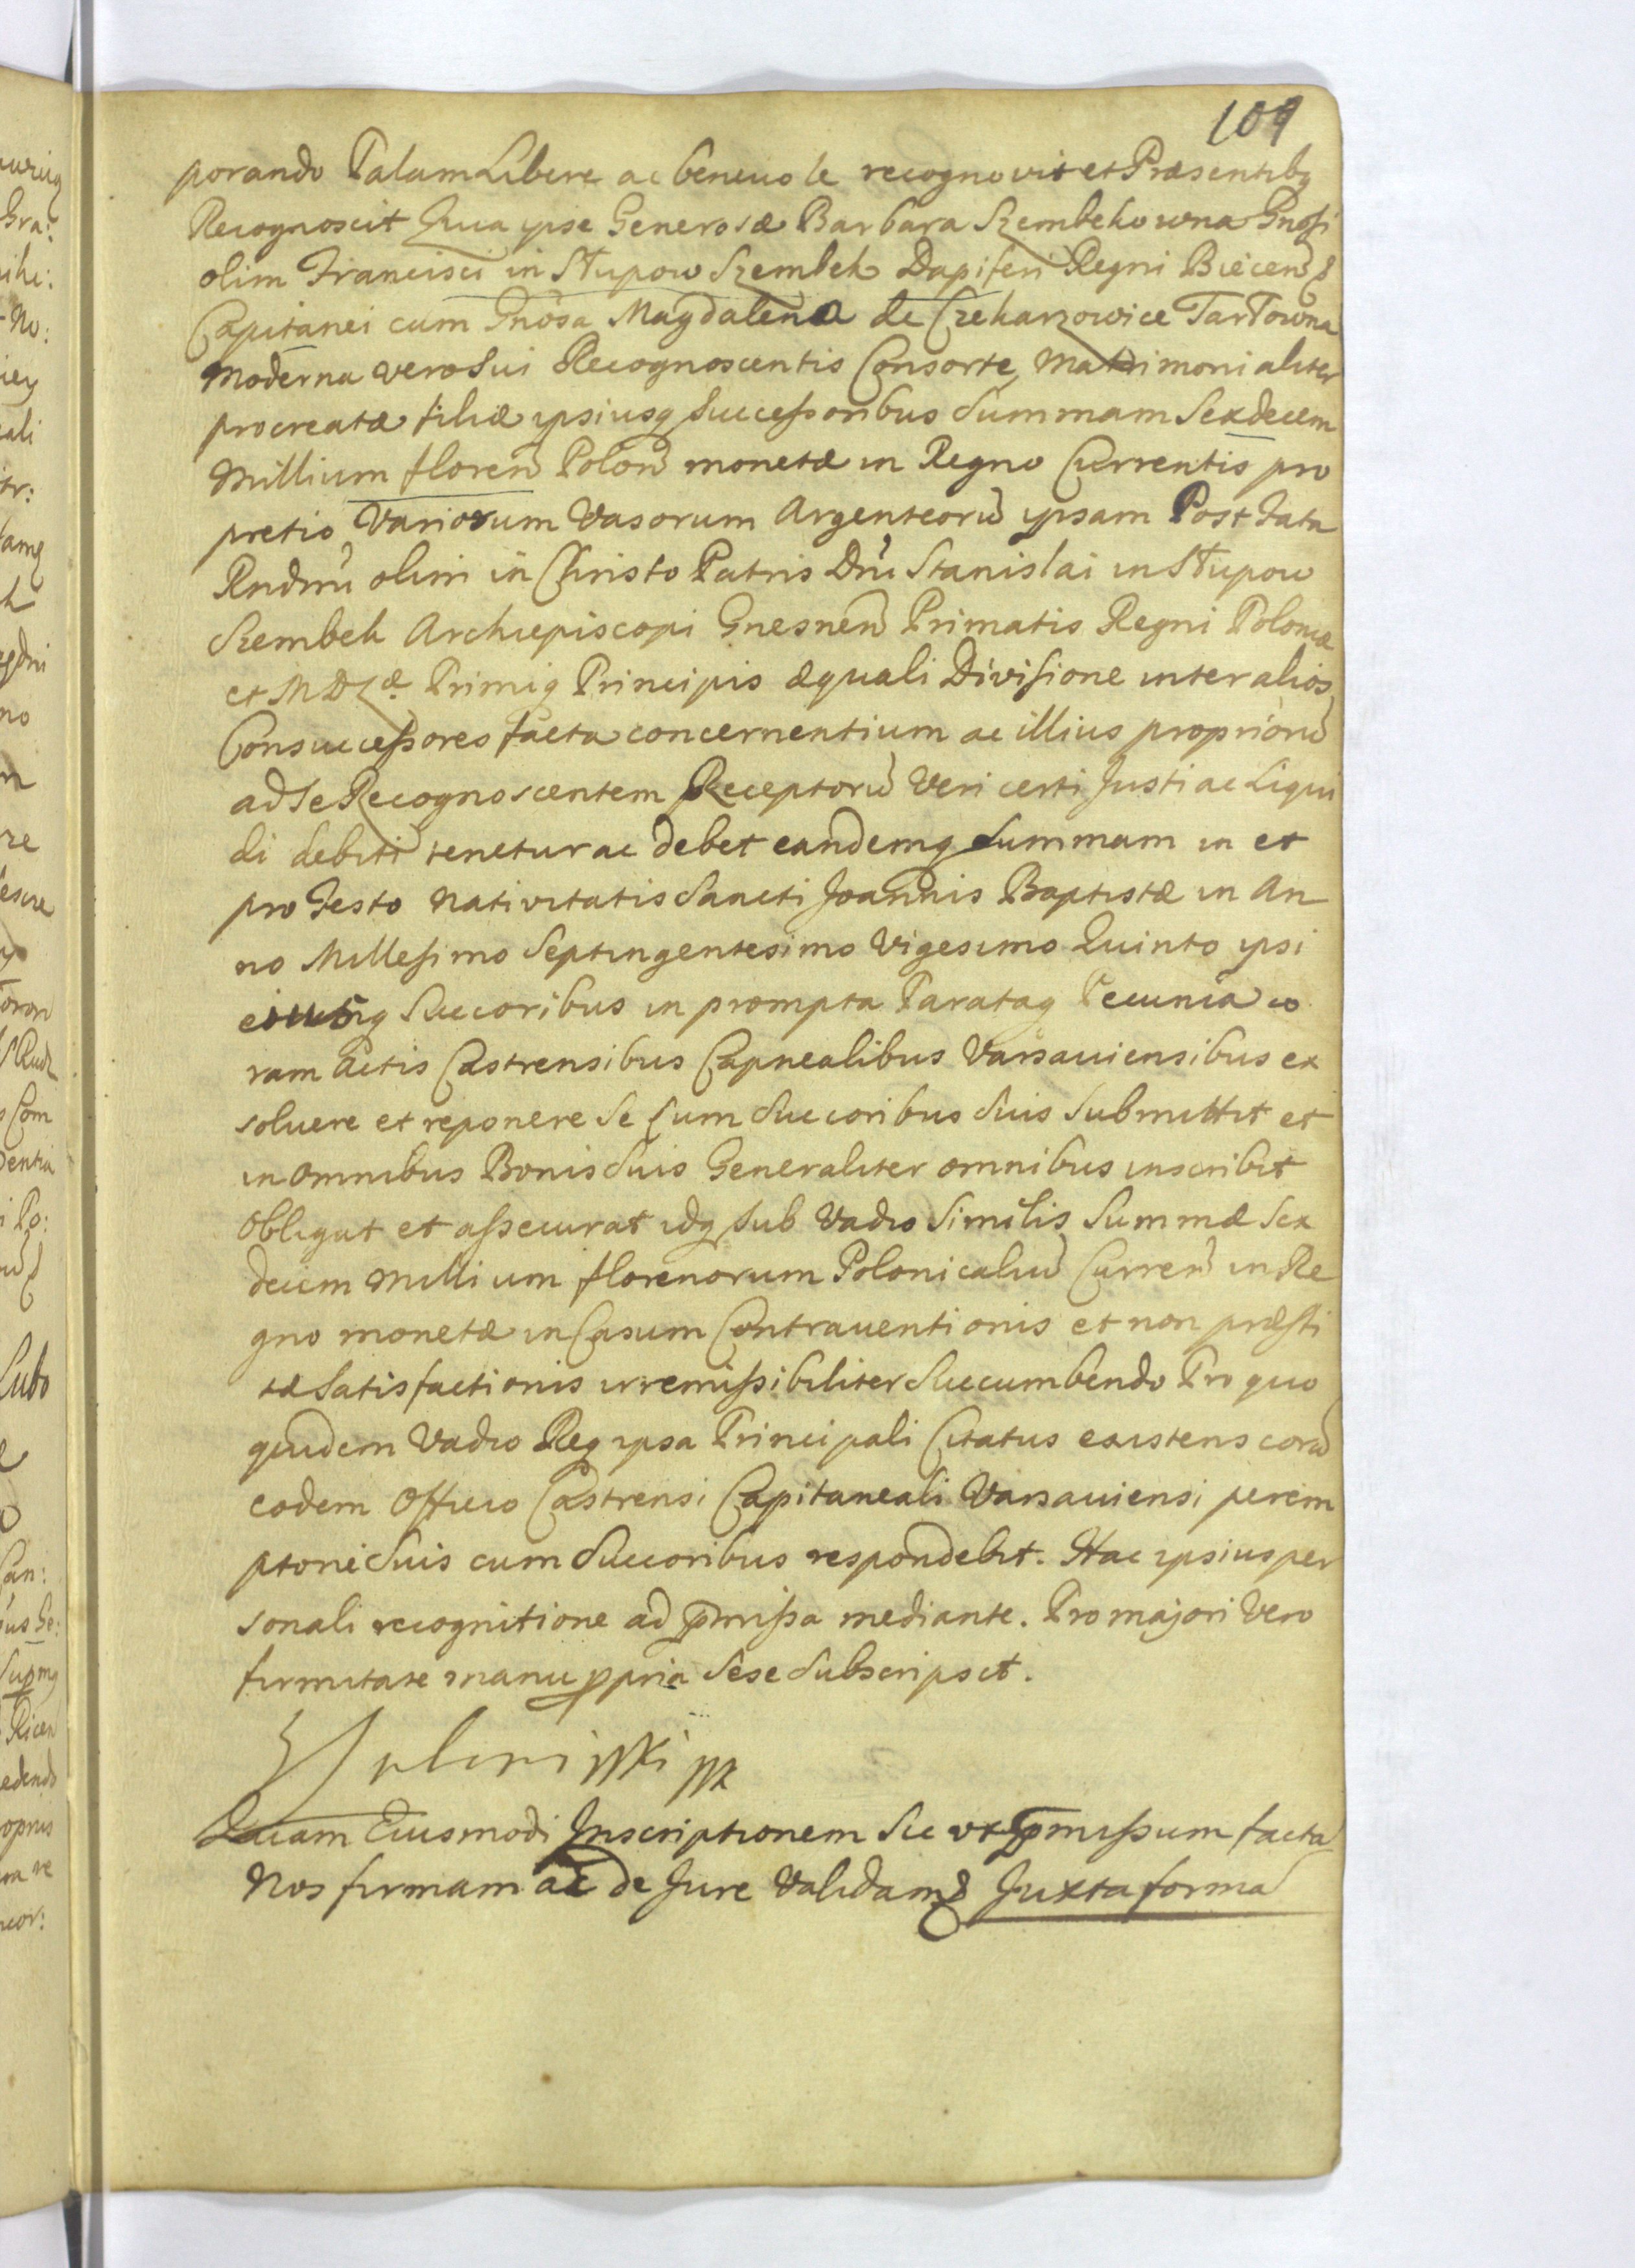 109
porando Palam Libere ac beneuole recognovit et Præsentibq
Recognoscit Quia ipse Generosæ Barbara Szembekowna Gnosi
olim Francisci in Słupow Szembek Dapiferi Regni Biecen &
Capitanei cum Gnosa Magdalena de Czekarzowice Tarłowna
Moderna vero Sui Recognoscentis Consorte Matrimonialiter
procreatæ filiæ ipsiusq Successoribus Summam Sexdecem
Millium floren Polon monetæ in Regno Currentis pro
pretio Variorum Vasorum Argenteorū ipsam Post Fata
Rndmi olim in Christo Patris Dni Stanislai in Słupow
Szembek Archiepiscopi Gnesnen Primatis Regni Poloniæ
et MDLæ Primiq Principis æquali Divisione inter alios
Consuccessores facta concernentium ac illius propriorū
ad se Recognoscentem Receptorū Veri certi Justi ac Liqui
di debiti tenetur ac debet eandemq Summam in et
pro Festo Nativitatis Sancti Joannis Baptistæ in An
no Millesimo Septingentesimo Vigesimo Quinto ipsi
eiusq Succoribus in prompta Parataq Pecunia co
ram Actis Castrensibus Capnealibus Varsauiensibus ex
soluere et reponere Se Cum Succoribus Suis Submittit et
in omnibus Bonis Suis Generaliter omnibus inscribit
Obligat et assecurat idq Sub Vadio Similis Summæ Sex
decem Millium florenorum Polonicaliū Curren in Re
gno monetæ in Casum Contrauentionis et non præsti
tæ Satisfactionis irremissibiliter Succumbendo Pro quo
quidem Vadio Req ipsa Principali Citatus existens corā
eodem Officio Castrensi Capitaneali Varsauiensi perem
ptorie Suis cum Succoribus respondebit. Hac ipsius per
sonali recognitione ad pmissa mediante. Pro majori Vero
firmitate manu ppria Sese Subscripsit.
Quam Eiusmodi Inscriptionem Sic ut pmissum facta
Nos firmam ac de Jure Validam & Juxta forma